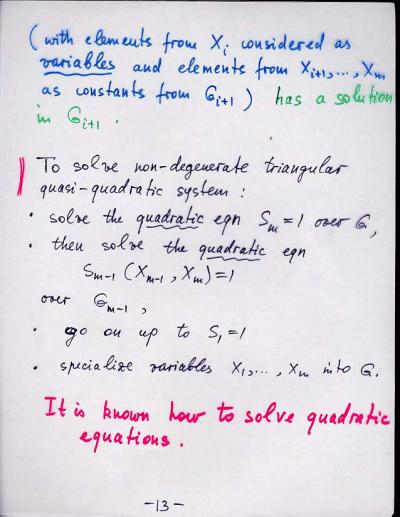 (with elements from Xi considered as
variables and elements from Xi+1,..., Xm
as constants from Gi+1) has a solution
in Gi+1.
To solve non-degenerate triangular
quasi-quadratic system:
• solve the quadratic eqn Sm = 1 over G,
• then solve the quadratic eqn
Sm-1 (Xm-1, Xm) = 1
over Gm-1,
• go on up to S1 = 1
• specialize variables X1,..., Xm into G.
It is known how to solve quadratic
equations.
-13-